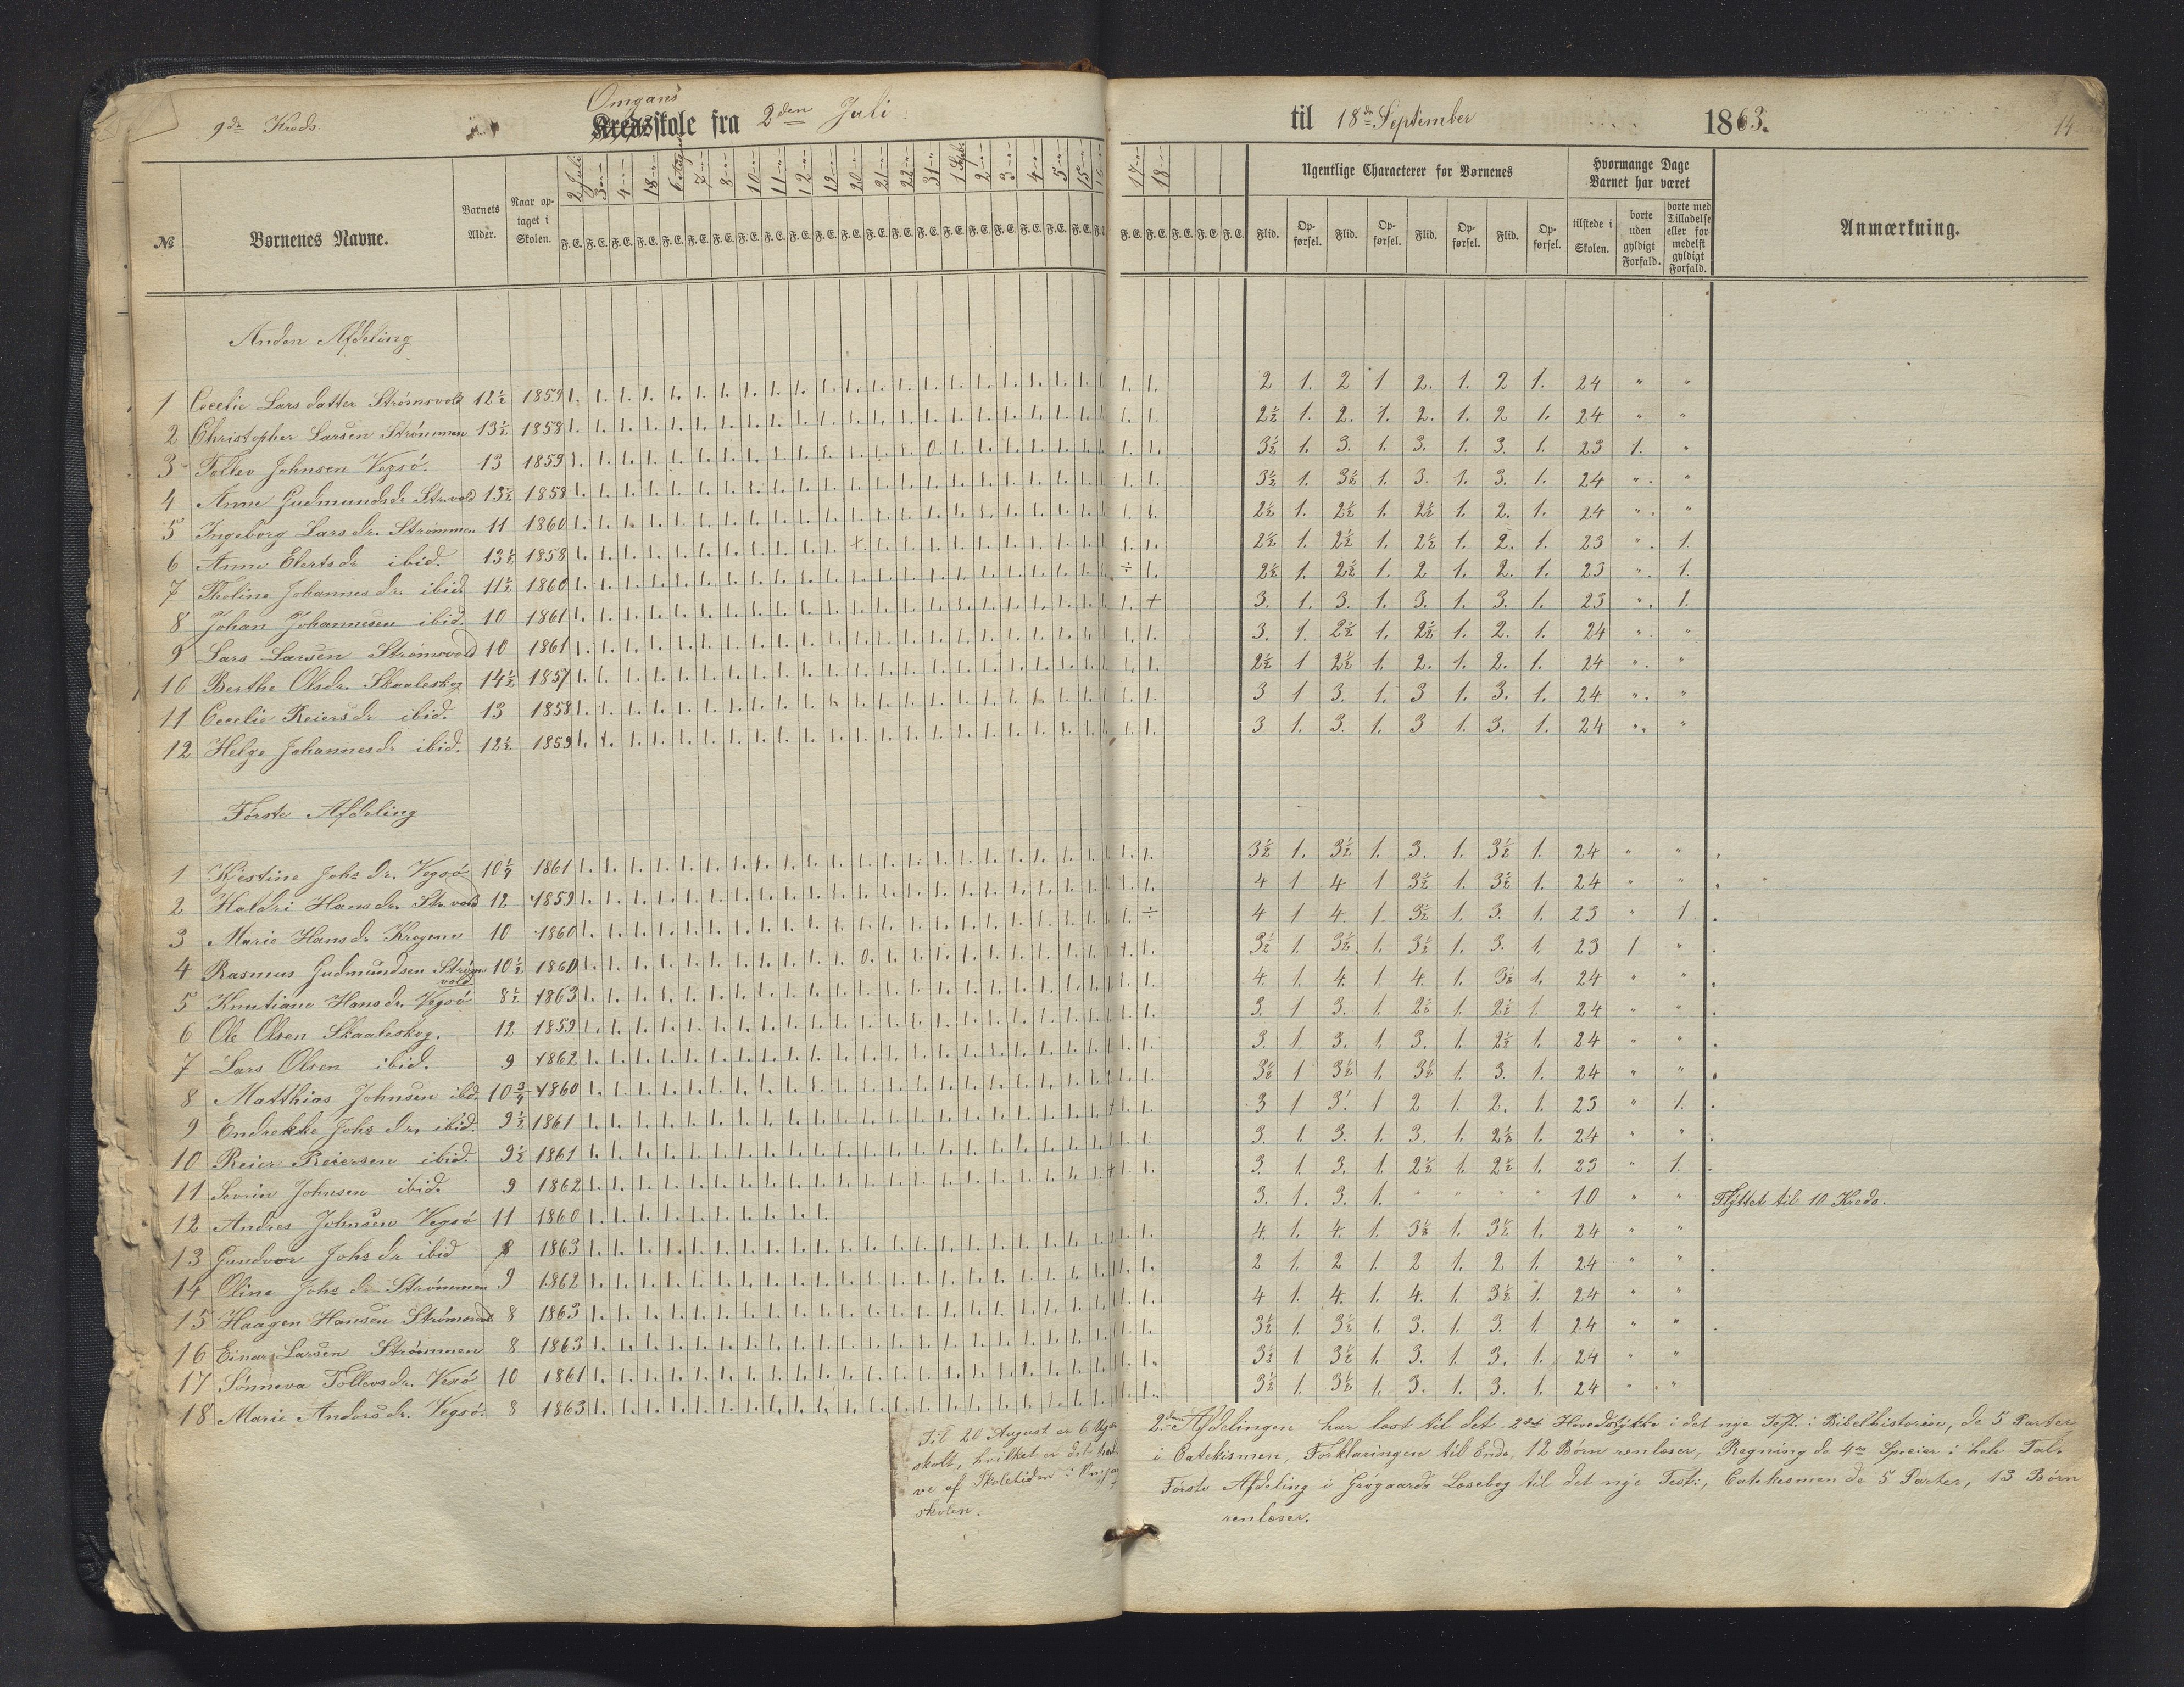 9de Kreds.
Omgans
Kredsskole fra 2den Juli til 18de September 1863. 14
№ Børnenes Navne. Barnets Alder. Naar optaget i Skolen. 2 Juli 3 4 18 6 August 7 8 10 11 12 19 20 21 22 31 1 Septr 2 3 4 5 15 17 18 Ugentlige Characterer for Børnenes Hvormange Dage Barnet har været Anmærkning.
F. E. Flid. Opførsel. Flid. Opførsel. Flid. Opførsel. Flid. Opførsel. tilstede i Skolen. borte uden gyldigt Forfald. borte med Tilladelse eller formedelst gyldigt Forfald.
Anden Afdeling
1 Cecelie Larsdatter Strømsvold 12½ 1859 2 1. 2 1 2. 1. 2 1. 24 " "
2 Christopher Larsen Strømmen 13½ 1858 2½ 1. 2. 1. 2. 1. 2 1. 24 " "
3 Tollev Johnsen Vegsø. 13 1859 3½ 1. 3. 1. 3. 1. 3. 1. 23 1. "
4 Anne Gudmundsdr Strvold 13½ 1858 3½ 1. 3½ 1. 3. 1. 3. 1. 24 " "
5 Ingeborg Larsdr. Strømmen 11 1860 2½ 1. 2½ 1. 2½ 1. 2. 1. 24 " "
6 Anne Elertsdr ibid. 13½ 1858 2½ 1. 2½ 1. 2½ 1. 2. 1. 23 " 1.
7 Tholine Johannesdr. ibid. 11½ 1860 2½ 1. 2½ 1. 2 1. 2. 1. 23 " 1.
8 Johan Johannesen ibid. 10 1861 3. 1. 3. 1. 3. 1. 3. 1. 23 " 1.
9 Lars Larsen Strømsvold 10 1861 3. 1. 2½ 1. 2½ 1. 2. 1. 24 " "
10 Berthe Olsdr. Skaaleskog 14½ 1857 2½ 1 2½ 1. 2. 1. 2. 1. 24 " "
11 Cecelie Reiersdr ibid. 13 1858 3 1 3. 1. 3 1. 3. 1. 24 " "
12 Helge Johannesdr ibid. 12½ 1859 3 1. 3. 1. 3 1. 3. 1. 24 " "
Første Afdeling
1 Kjestine Johsdr. Vegsø 10¼ 1861 3½ 1. 3½ 1. 3. 1. 3½ 1. 24 " "
2 Haldri Hansdr. Strvold 12 1859 4 1 4 1 3½ 1. 3½ 1. 24 " "
3 Marie Hansdr. Krogene 10 1860 4 1 4. 1. 3½ 1. 3. 1. 23 " 1
4 Rasmus Gudmundsen Strømsvold 10½ 1860 3½ 1. 3½ 1. 3½ 1. 3. 1. 23 1 "
5 Knutiane Hansdr. Vegsø 8½ 1863 4. 1. 4. 1 4. 1. 3½ 1. 24 " "
6 Ole Olsen Skaaleskog. 12 1859 3. 1 3. 1. 2½ 1. 2½ 1. 24 " "
7 Lars Olsen ibid. 9 1862 3. 1. 3. 1. 3. 1. 2½ 1. 24 " "
8 Matthias Johnsen ibd. 10¾ 1860 3½ 1 3½ 1. 3½ 1. 3. 1. 24 " "
9 Endrekke Johsdr. ibid. 9½ 1861 3 1 3. 1 2 1. 2. 1. 23 " 1.
10 Reier Reiersen ibid. 9½ 1861 3. 1. 3. 1. 3. 1. 2½ 1. 24 " "
11 Sevrin Johnsen ibid. 9 1862 3. 1. 3. 1. 2½ 1. 2½ 1. 23 " 1.
12 Andres Johnsen Vegsø 11 1860 3. 1. 3. 1. " " " " 10 " " Flyttet til 10 Kreds.
13 Gundvor Johsdr ibid 8 1863 4. 1. 4. 1. 3½ 1. 3½ 1. 24 " "
14 Oline Johsdr Strømmen 9 1862 2 1. 2 1. 2 1. 2 1. 24 " "
15 Haagen Hansen Strømsvold 8 1863 4 1. 4. 1. 4. 1. 3½ 1. 24 " "
16 Einar Larsen Strømmen 8 1863 3½ 1. 3½ 1. 3. 1. 3. 1. 24 " "
17 Sønneva Tollevsdr. Vexø 10 1861 3½ 1. 3½ 1. 3. 1. 3. 1. 24 " "
18 Marie Andersdr. Vegsø. 8 1863 3½ 1. 3½ 1. 3. 1. 3. 1. 24 " "
Til 20 August er 6 Uger
skolt, hvilket er det
ve af Skoletiden i
skolen.
2den Afdelingen har læst til det 2det Hovedstykke i det nye Test. i Bibelhistorien, de 5 Parter
i Catekismen, Forklaringen til Ende, 12 Børn renlæser, Regning de 4re Speeier i hele Tal.
Første Afdeling i Grøgaards Læsebog til det nye Test., Catekismen de 5 Parter, 13 Børn
renlæser.